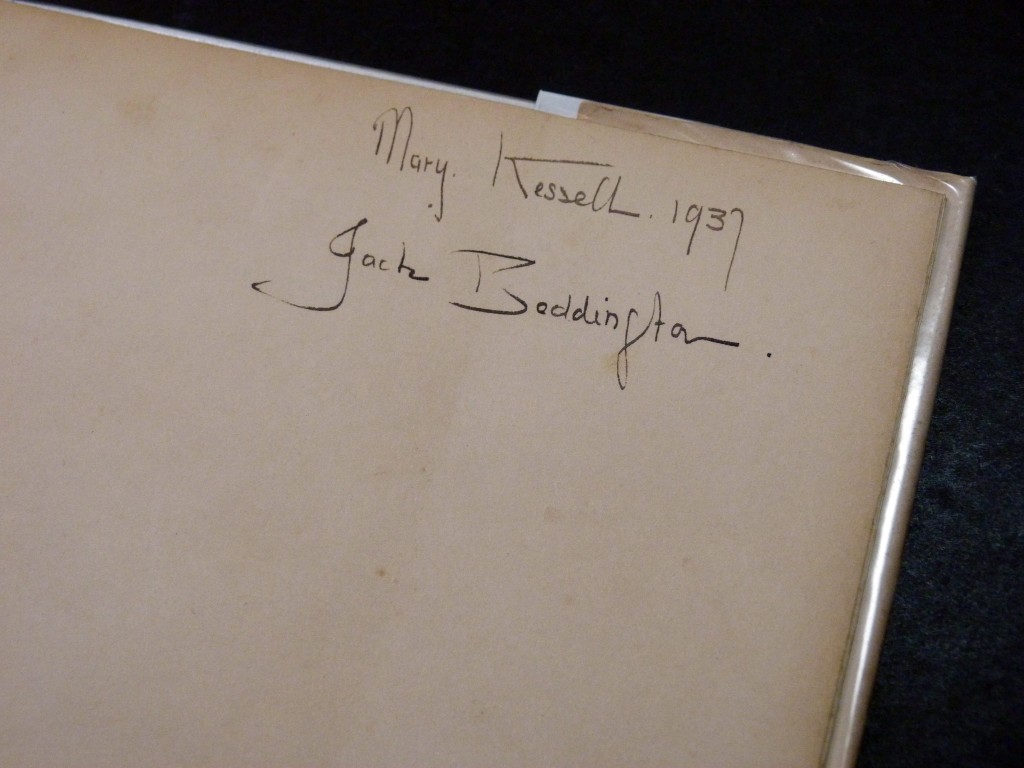 Mary. Kessell. 1937
Jack Beddington.